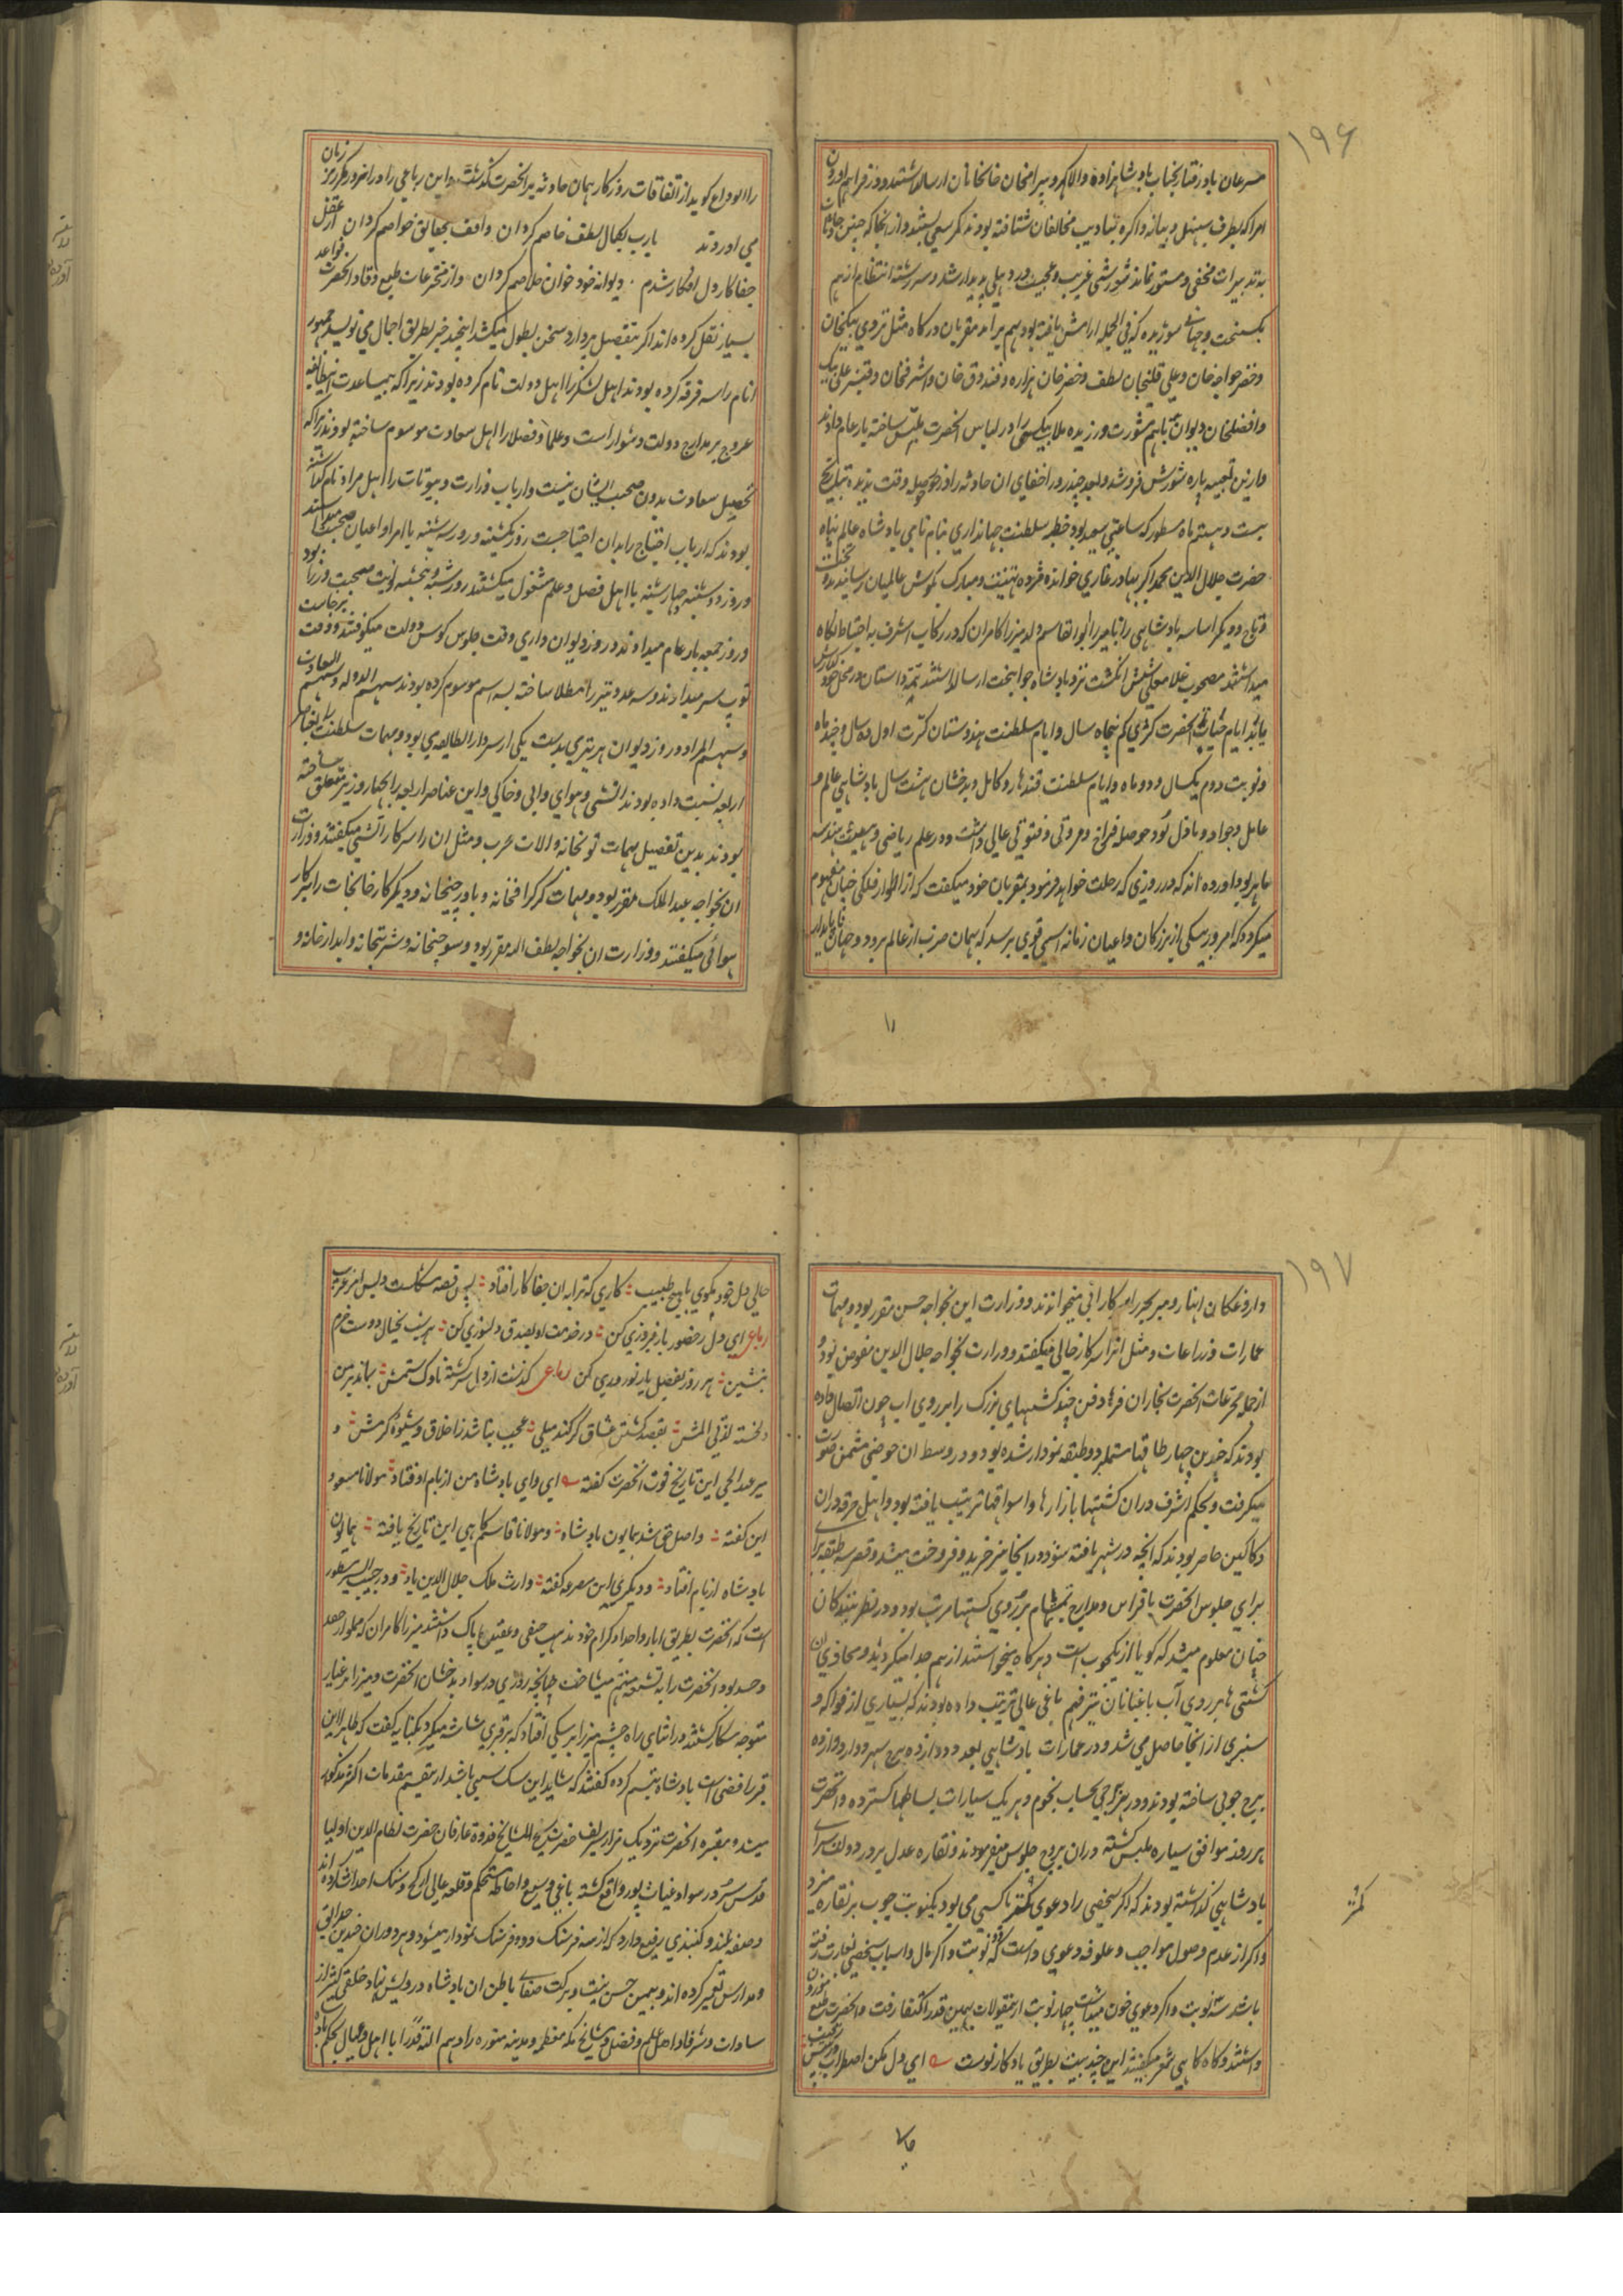 ۱۹۶
مسرعان باد رفتار بجناب بادشاهزاده والاگهر و بیرامخان خانخانان ارسال داشتند و در فراهم اوردن
امرا که بطرف سنبهل و بیانه و اگره بتادیب مخالفان شتافته بودند کمر سعی بستند و از انجا که چنین حادثات
به تدبیرات مخفی و مستور نماند شورشی غریب و عجیب در دهلی پدیدار شد و سررشته انتظام از هم
بکسیخت و جهانے سوریده که فی الجمله ارامش یافته بود بهم برامد مقربان درکاه مثل تردی بیکخان
و خضر خواجه خان و علی قلیخان لطف و خضر خان هزاره و قندوق خان و اشرفخان و قنبر علی بیک
و افضلخان دیوان باهم مشورت ورزیده ملا بیکسی را در لباس انحضرت ملبس ساخته بار عام دادند
و ازین تعبیه پاره شورش فرو شد و بعد چند روز اخفای ان حادثه را در حوصله وقت ندیده بتاریخ
بیست و هشتم ماه مسطور که ساعتی سعید بود خطبه سلطنت جهانداری بنام نامی پادشاه عالم پناه
حضرت جلال الدین محمد اکبر بهادر غازی خوانده مژده تهنیت و مبارک بکوش عالمیان رسانیدند و تخت
و تاج و دیکر اساسه بادشاهی را با میرزا ابوالقاسم ولد میرزا کامران که در رکاب اشرف به احتیاط نکاه
میداشتند مصحوب غلام علی شش انکشت نزد بادشاه جوانبخت ارسال داشتند تتمه داستان در محل خود گذارش
یابد ایام حیات انحضرت کرّی کم پنجاه سال و ایام سلطنت هندوستان کرّت اول ده سال و چند ماه
و نوبت دوم یکسال و دو ماه و ایام سلطنت قندهار و کابل و بدخشان هشت سال بادشاهی عالم و
عامل و جواد و باذل بود حوصله فراخ و مروتی و فتوتی عالی داشت و در علم ریاضی و هیئت و هندسه
ماهر بود اورده اند که در روزی که رحلت خواهد فرمود بمقربان خود میکفت که از اطوار فلکی چنان مفهوم
میکردد که امروز بیکی از بزرکان و اعیان زمانه اسیبی قوی برسد که بهمان ضرب از عالم برود و جهان ناپایدار
را الوداع کوید از اتفاقات روزکار همان حادثه بر انحضرت کذشت و این رباعی را در انروز مکرر بر زبان
می اوردند یارب بکمال لطف خاصم کردان واقف بحقایق خواصم کردان از عقل
جفاکار دل افکار شدم دیوانه خود خوان خلاصم کردان و از مخترعات طبع وقاد انحضرت قواعد
بسیار نقل کرده اند اکر بتفصیل پردازد سخن بطول میکشد اینچند خبر بطریق اجمال می نویسد جمهور
انام را سه فرقه کرده بودند اهل لشکر را اهل دولت نام کرده بودند زیرا که بیمساعدت اینطایفه
عروج بر مدارج دولت دشوار است و علما و فضلا را اهل سعادت موسوم ساخته بودند زیرا که
تحصیل سعادت بدون صحبت ایشان نیست و ارباب وزارت و بیوتات را اهل مراد نام کذاشته
بودند که ارباب احتیاج را بدان احتیاجست روز یکشنبه و روز سه شنبه با امرا و اعیان صحبت میداشتند
و روز دوشنبه و چهارشنبه با اهل فضل و علم مشغول میکشتند روز شنبه و پنجشنبه نوبت صحبت وزرا بود
و روز جمعه بار عام میدادند در روز دیوان داری وقت جلوس کوس دولت میکوفتند و وقت برخاست
توپ سر میدادند و سه عدد تیر را مطلا ساخته به سه اسم موسوم کرده بودند سهم الدوله و سهم السعادت
و سهم المراد و روز دیوان هر تیری بدست یکی از سردار الطایفه می بود و مهمات سلطنت را بعناصر
اربعه نسبت داده بودند اتشی و هوایی و ابی و خاکی و این عناصر اربعه را بچهار وزیر متعلق ساخته
بودند بدین تفصیل مهمات توپخانه و الات حرب و مثل ان را سرکار اتشی میکفتند و وزارت
ان بخواجه عبد الملک مقرر بود و مهمات کرکراقخانه و باورچیخانه و دیکر کارخانجات را سرکار
هوائی میکفتند و وزارت ان بخواجه لطف الله مقرر بود و سوچیخانه و شربتخانه و ابدارخانه و
۱۹۷
داروغکان انهار و میر بحر را سرکار ابی میخواندند و وزارت این بخواجه حسن مقرر بود و مهمات
عمارات و زراعات و مثل انرا سرکار خاکی میکفتند و وزارت بخواجه جلال الدین مفوض بود و
از جمله مخترعات انحضرت نجاران فرهاد فن چند کشتیهای بزرک را بر روی اب چون اتصال داده
بودند که چندین چهار طاقها مشتمل بر دو طبقه نمودار شده بود و در وسط ان حوضی مثمن صورت
میکرفت و بحکم اشرف دران کشتیها بازارها و اسواقها ترتیب یافته بود و اهل حرفه دران
دکاکین حاضر بودند که انچه در شهر یافته شود در انجا نیز خرید و فروخت میشد و قصر سه طبقه برای
برای جلوس انحضرت با فراس و مدارج تمام بر روی کشتیها مرتب بود و در نظر بینندکان
چنان معلوم میشد که کویا از یکچوب است و هرکاه میخواستند از هم جدا میکردیدند و محاذی ان
کشتی ها بر روی آب باغبانان تیزفهم باغی عالی ترتیب داده بودند که بسیاری از فواکه و
سبزی از انجا حاصل می شد و در عمارات بادشاهی بعدد دوازده برج سپهر دوار دوازده
برج چوبی ساخته بودند و در هر برجی بحساب نجوم و هر یک سیارات بساطها کسترده و انحضرت
هر روز موافق سیاره ملبس کشته دران بروج جلوس میفرمودند و نقاره عدل بر در دولت سرای
بادشاهی کذاشته بودند که اکر شخصی را دعوی کمتر با کسی می بود یکنوبت چوب بر نقاره میزد
کمتر
و اکر از عدم وصول مواجب و علوفه دعوی داشت دو نوبت و اکر مال و اسباب شخصی بغارت رفته
باشد سه نوبت و اکر دعوی خون میداشت چهار نوبت از منقولات بهمین قدر اکتفا رفت و انحضرت طبع موزون
داشتند و کاه کاهی شعر میکفتند این چند بیت بطریق یادکار نوشت ای دل مکن اضطراب در پیش رقیب
حالی دل خود مکوی با هیچ طبیب کاری که ترا به ان جفاکار افتاد بس قصه مشکلست و بس امر عجیب
رباعی ای دل ز حضور یار فیروزی کن در خدمت او بصدق دلسوزی کن هر شب بخیال دوست خرم
بنشین هر روز بفضل یار نوروزی کن رباعی کذشت از دل سرکشته ناوک ستمش بماند بر من
دلخسته لذت المش بقصد کشتن عشاق کر کند میلی عجب نباشد ز اخلاق و شیوه کرمش و
میر عبد الحی این تاریخ فوت انحضرت کفته ای وای بادشاه من از بام اوفتاد مولانا مسعود
این کفته واصل حق شد همایون بادشاه و مولانا قاسم کاهی این تاریخ یافته همایون
بادشاه از بام افتاد و دیکری این مصرعه کفته وارث ملک جلال الدین باد و در حبیب السیر مسطور
است که انحضرت بطریق ابا و اجداد کرام خود مذهب حنفی و عقیده پاک داشتند میرزا کامران که مملو از حقد
و حسد بود انحضرت را به تشیع متهم میساخت چنانچه روزی در سواد بدخشان انحضرت و میرزا بر غبار
متوجه شکار کشتند در اثنای راه چشم میرزا بر سکی افتاد که بر قبری شاشه میکرد بکنایه کفت که ظاهرا این
قبر رافضی است بادشاه تبسم کرده کفتند که شاید این سک سنی باشد از تقسیم مقدمات اکثر مذکور
میشد و مقبره انحضرت نزدیک مزار شریف حضرت شیخ المشایخ قدوة عارفان حضرت نظام الدین اولیا
قدس سره در سواد غیاث پور واقع کشته باغی وسیع و احاطه مستحکم و قلعه عالی از کچ و سنک احداث کرده اند
و صفه بلند و کنبذی رفیع دارد که از سه فرسنک و دو فرسنک نمودار میشود و بر دوران چندین حوالی
و مدارس تعمیر کرده اند و بیمن حسن نیت و برکت صفای باطن ان بادشاه درویش نهاد خلقی کثیر از
سادات و شرفا و اهل علم و فضل و مشایخ مکه معظمه و مدینه منوره زادهم الله قدرا با اهل و عیال بحکم بادشاه